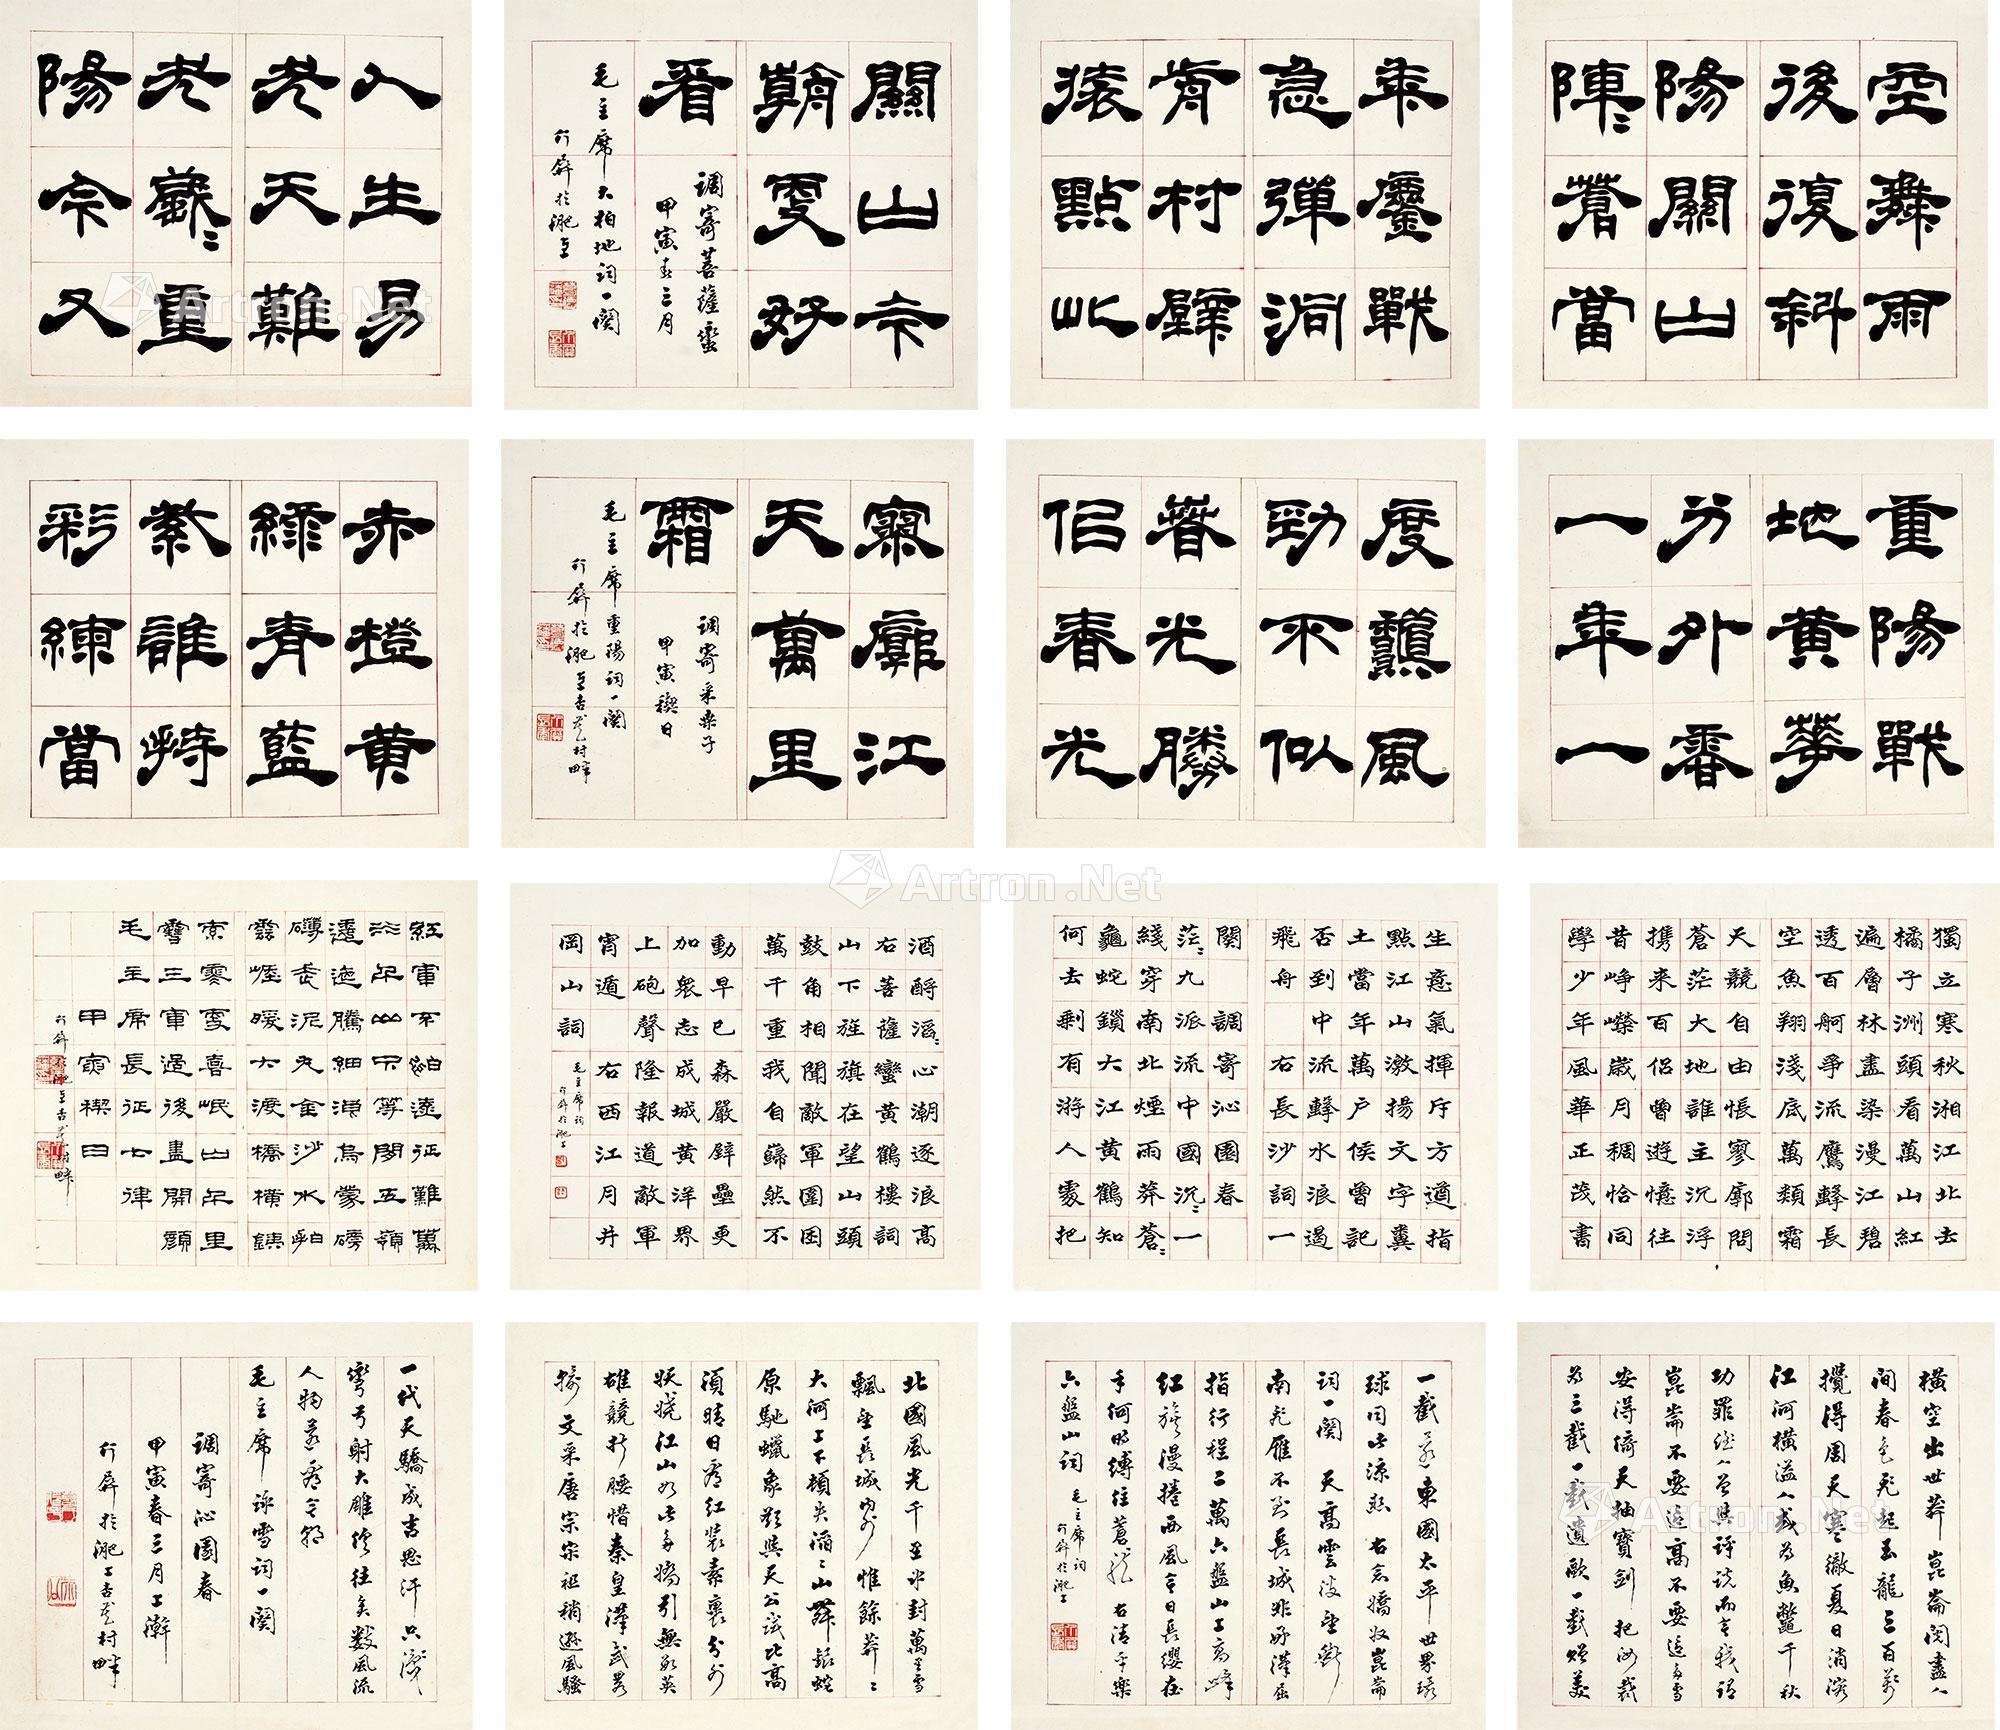 空舞雨
後復斜
陽關山
陣〻蒼當
年鏖戰
急彈洞
前村壁
裝點此
關山今
朝更好
看
調寄菩薩蠻
甲寅春三月
毛主席大柏地詞一闋
行屏於淝上
人生易
老天難
老歲〻重
陽今又
重陽戰
地黃花
分外香
一年一
度秋風
勁不似
春光勝
似春光
寥廓江
天萬里
霜
調寄采桑子
甲寅禊日
毛主席重陽詞一闋
行屏於淝上杏花村畔
赤橙黃
綠青藍
紫誰持
彩練當
獨立寒秋湘江北去
橘子洲頭看萬山紅
遍層林盡染漫江碧
透百舸爭流鷹擊長
空魚翔淺底萬類霜
天競自由悵寥廓問
蒼茫大地誰主沉浮
攜來百侶曾遊憶往
昔崢嶸歲月稠恰同
學少年風華正茂書
生意氣揮斥方遒指
點江山激揚文字糞
土當年萬戶侯曾記
否到中流擊水浪遏
飛舟 右長沙詞一
闋 調寄沁園春
茫〻九派流中國沉〻一
綫穿南北煙雨莽蒼〻
龜蛇鎖大江黃鶴知
何去剩有游人處把
酒酹滔〻心潮逐浪高
右菩薩蠻黃鶴樓詞
山下旌旗在望山頭
鼓角相聞敵軍圍困
萬千重我自巋然不
動早已森嚴壁壘更
加衆志成城黃洋界
上砲聲隆報道敵軍
宵遁 右西江月井
岡山詞
毛主席詞
行屏於淝上
紅軍不怕遠征難萬
水千山只等閒五嶺
逶迤騰細浪烏蒙磅
礴走泥丸金沙水拍
雲崖暖大渡橋橫鐵
索寒更喜岷山千里
雪三軍過後盡開顏
毛主席長征七律
甲寅禊日
橫空出世莽崑崙閱盡人
間春色飛起玉龍三百萬
攪得周天寒徹夏日消溶
江河橫溢人或為魚鱉千秋
功罪誰人曾與評說而今我謂
崑崙不要這高不要這多雪
安得倚天抽寶劍把汝裁
為三截一截遺歐一截贈美
一截還東國太平世界環
球同此涼熱 右念嬌奴崑崙
詞一闋 天高雲淡望斷
南飛雁不到長城非好漢屈
指行程二萬六盤山上高峰
紅旗漫捲西風今日長纓在
手何時縛住蒼龍 右清平樂
六盤山詞 毛主席詞
行屏於淝上
北國風光千里冰封萬里雪
飄望長城內外惟餘莽〻
大河上下頓失滔〻山舞銀蛇
原馳蠟象欲與天公試比高
須晴日看紅裝素裹分外
妖嬈江山如此多嬌引無數英
雄競折腰惜秦皇漢武略
輸文采唐宗宋祖稍遜風騷
一代天驕成吉思汗只識
彎弓射大雕俱往矣數風流
人物還看今朝
毛主席詠雪詞一闋
調寄沁園春
甲寅春三月上澣
行屏於淝上杏花村畔
Artron.Net
Artron.Net
Artron.Net